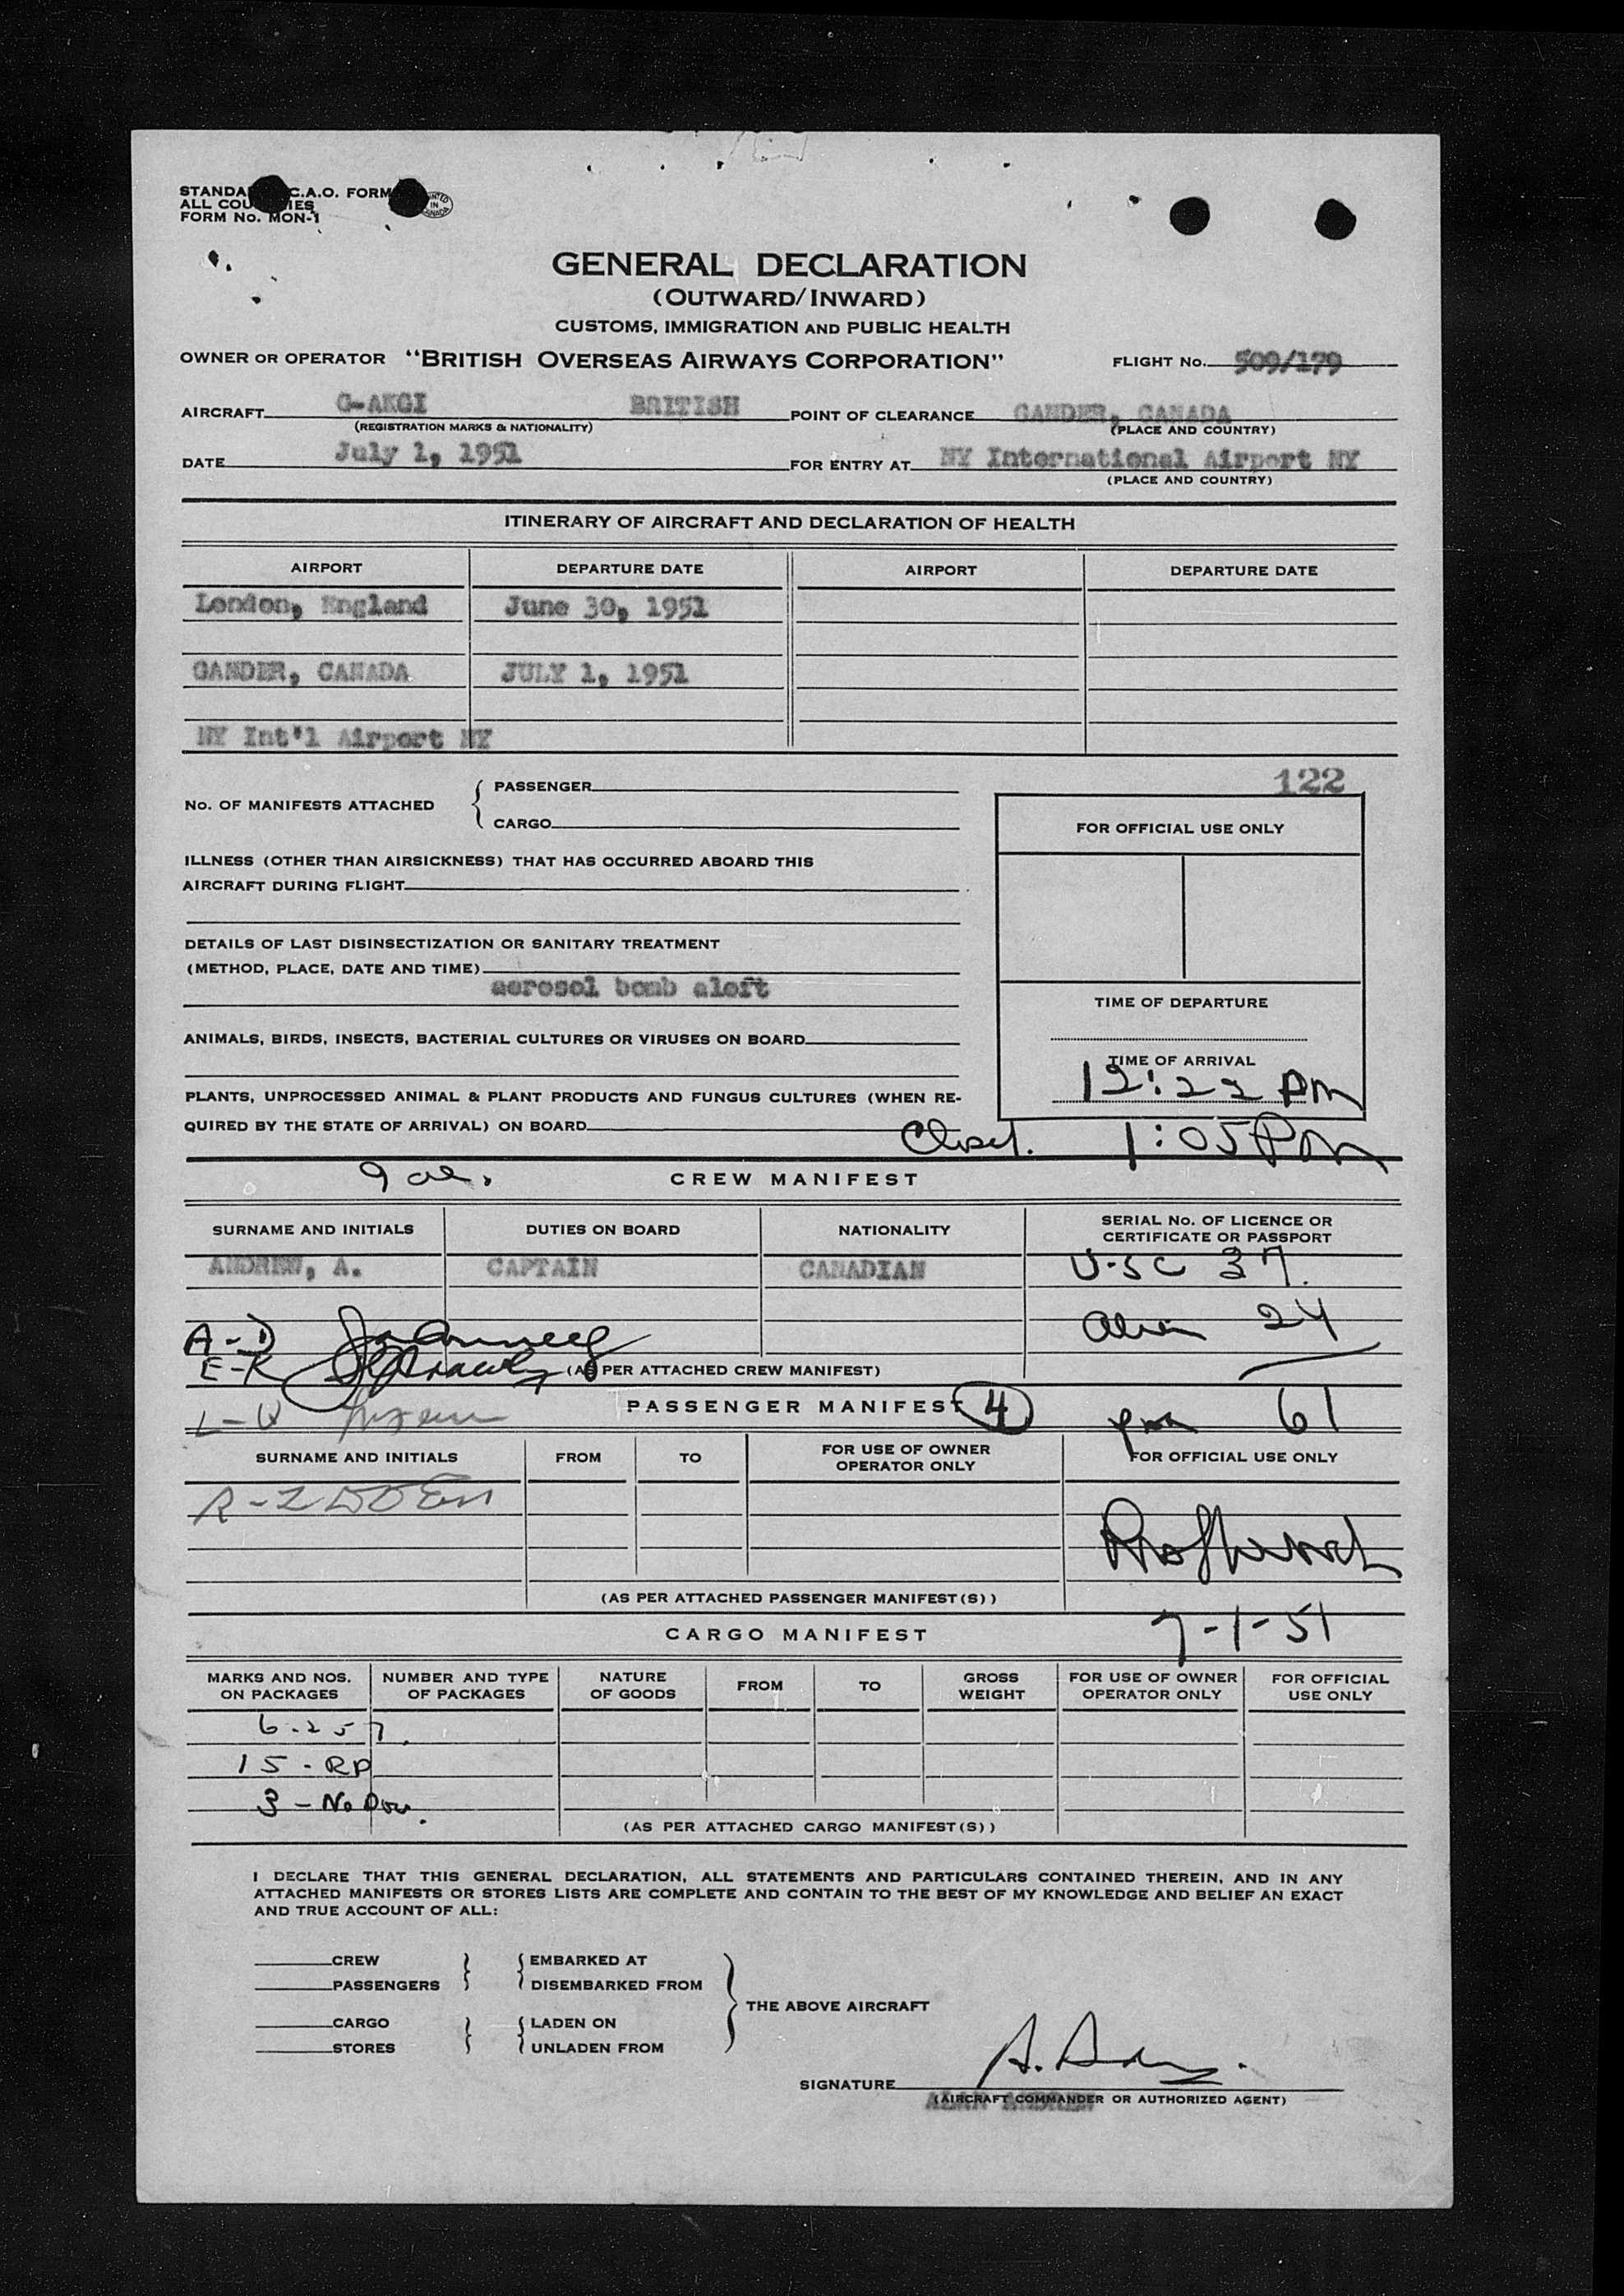 STANDA C.A.O. FORM
ALL COU IES
FORM No. MON-1
GENERAL DECLARATION
(OUTWARD/INWARD)
CUSTOMS, IMMIGRATION AND PUBLIC HEALTH
OWNER OR OPERATOR "BRITISH OVERSEAS AIRWAYS CORPORATION" FLIGHT No. 509/179
AIRCRAFT G-AKGI BRITISH POINT OF CLEARANCE GANDER, CANADA
(REGISTRATION MARKS & NATIONALITY) (PLACE AND COUNTRY)
DATE July 1, 1951 FOR ENTRY AT NY International Airport NY
(PLACE AND COUNTRY)
ITINERARY OF AIRCRAFT AND DECLARATION OF HEALTH
AIRPORT DEPARTURE DATE AIRPORT DEPARTURE DATE
London, England June 30, 1951
GANDER, CANADA JULY 1, 1951
NY Int'l Airport NY
122
No. OF MANIFESTS ATTACHED { PASSENGER
CARGO
FOR OFFICIAL USE ONLY
ILLNESS (OTHER THAN AIRSICKNESS) THAT HAS OCCURRED ABOARD THIS
AIRCRAFT DURING FLIGHT
DETAILS OF LAST DISINSECTIZATION OR SANITARY TREATMENT
(METHOD, PLACE, DATE AND TIME)
aerosol bomb aloft
TIME OF DEPARTURE
ANIMALS, BIRDS, INSECTS, BACTERIAL CULTURES OR VIRUSES ON BOARD
TIME OF ARRIVAL
12:22 PM
PLANTS, UNPROCESSED ANIMAL & PLANT PRODUCTS AND FUNGUS CULTURES (WHEN RE-
QUIRED BY THE STATE OF ARRIVAL) ON BOARD
Closed. 1:05 PM
9 CREW MANIFEST
SURNAME AND INITIALS DUTIES ON BOARD NATIONALITY SERIAL No. OF LICENCE OR CERTIFICATE OR PASSPORT
ANDREW, A. CAPTAIN CANADIAN U-SC 37.
A-D Alien 24
E-K (AS PER ATTACHED CREW MANIFEST)
L-Q PASSENGER MANIFEST 4 61
SURNAME AND INITIALS FROM TO FOR USE OF OWNER OPERATOR ONLY FOR OFFICIAL USE ONLY
R-Z
(AS PER ATTACHED PASSENGER MANIFEST(S))
7-1-51
CARGO MANIFEST
MARKS AND NOS. ON PACKAGES NUMBER AND TYPE OF PACKAGES NATURE OF GOODS FROM TO GROSS WEIGHT FOR USE OF OWNER OPERATOR ONLY FOR OFFICIAL USE ONLY
6-257.
15-RP
3-No
(AS PER ATTACHED CARGO MANIFEST(S))
I DECLARE THAT THIS GENERAL DECLARATION, ALL STATEMENTS AND PARTICULARS CONTAINED THEREIN, AND IN ANY
ATTACHED MANIFESTS OR STORES LISTS ARE COMPLETE AND CONTAIN TO THE BEST OF MY KNOWLEDGE AND BELIEF AN EXACT
AND TRUE ACCOUNT OF ALL:
CREW EMBARKED AT
PASSENGERS DISEMBARKED FROM
THE ABOVE AIRCRAFT
CARGO LADEN ON
STORES UNLADEN FROM
SIGNATURE
ALAN ANDREW
(AIRCRAFT COMMANDER OR AUTHORIZED AGENT)